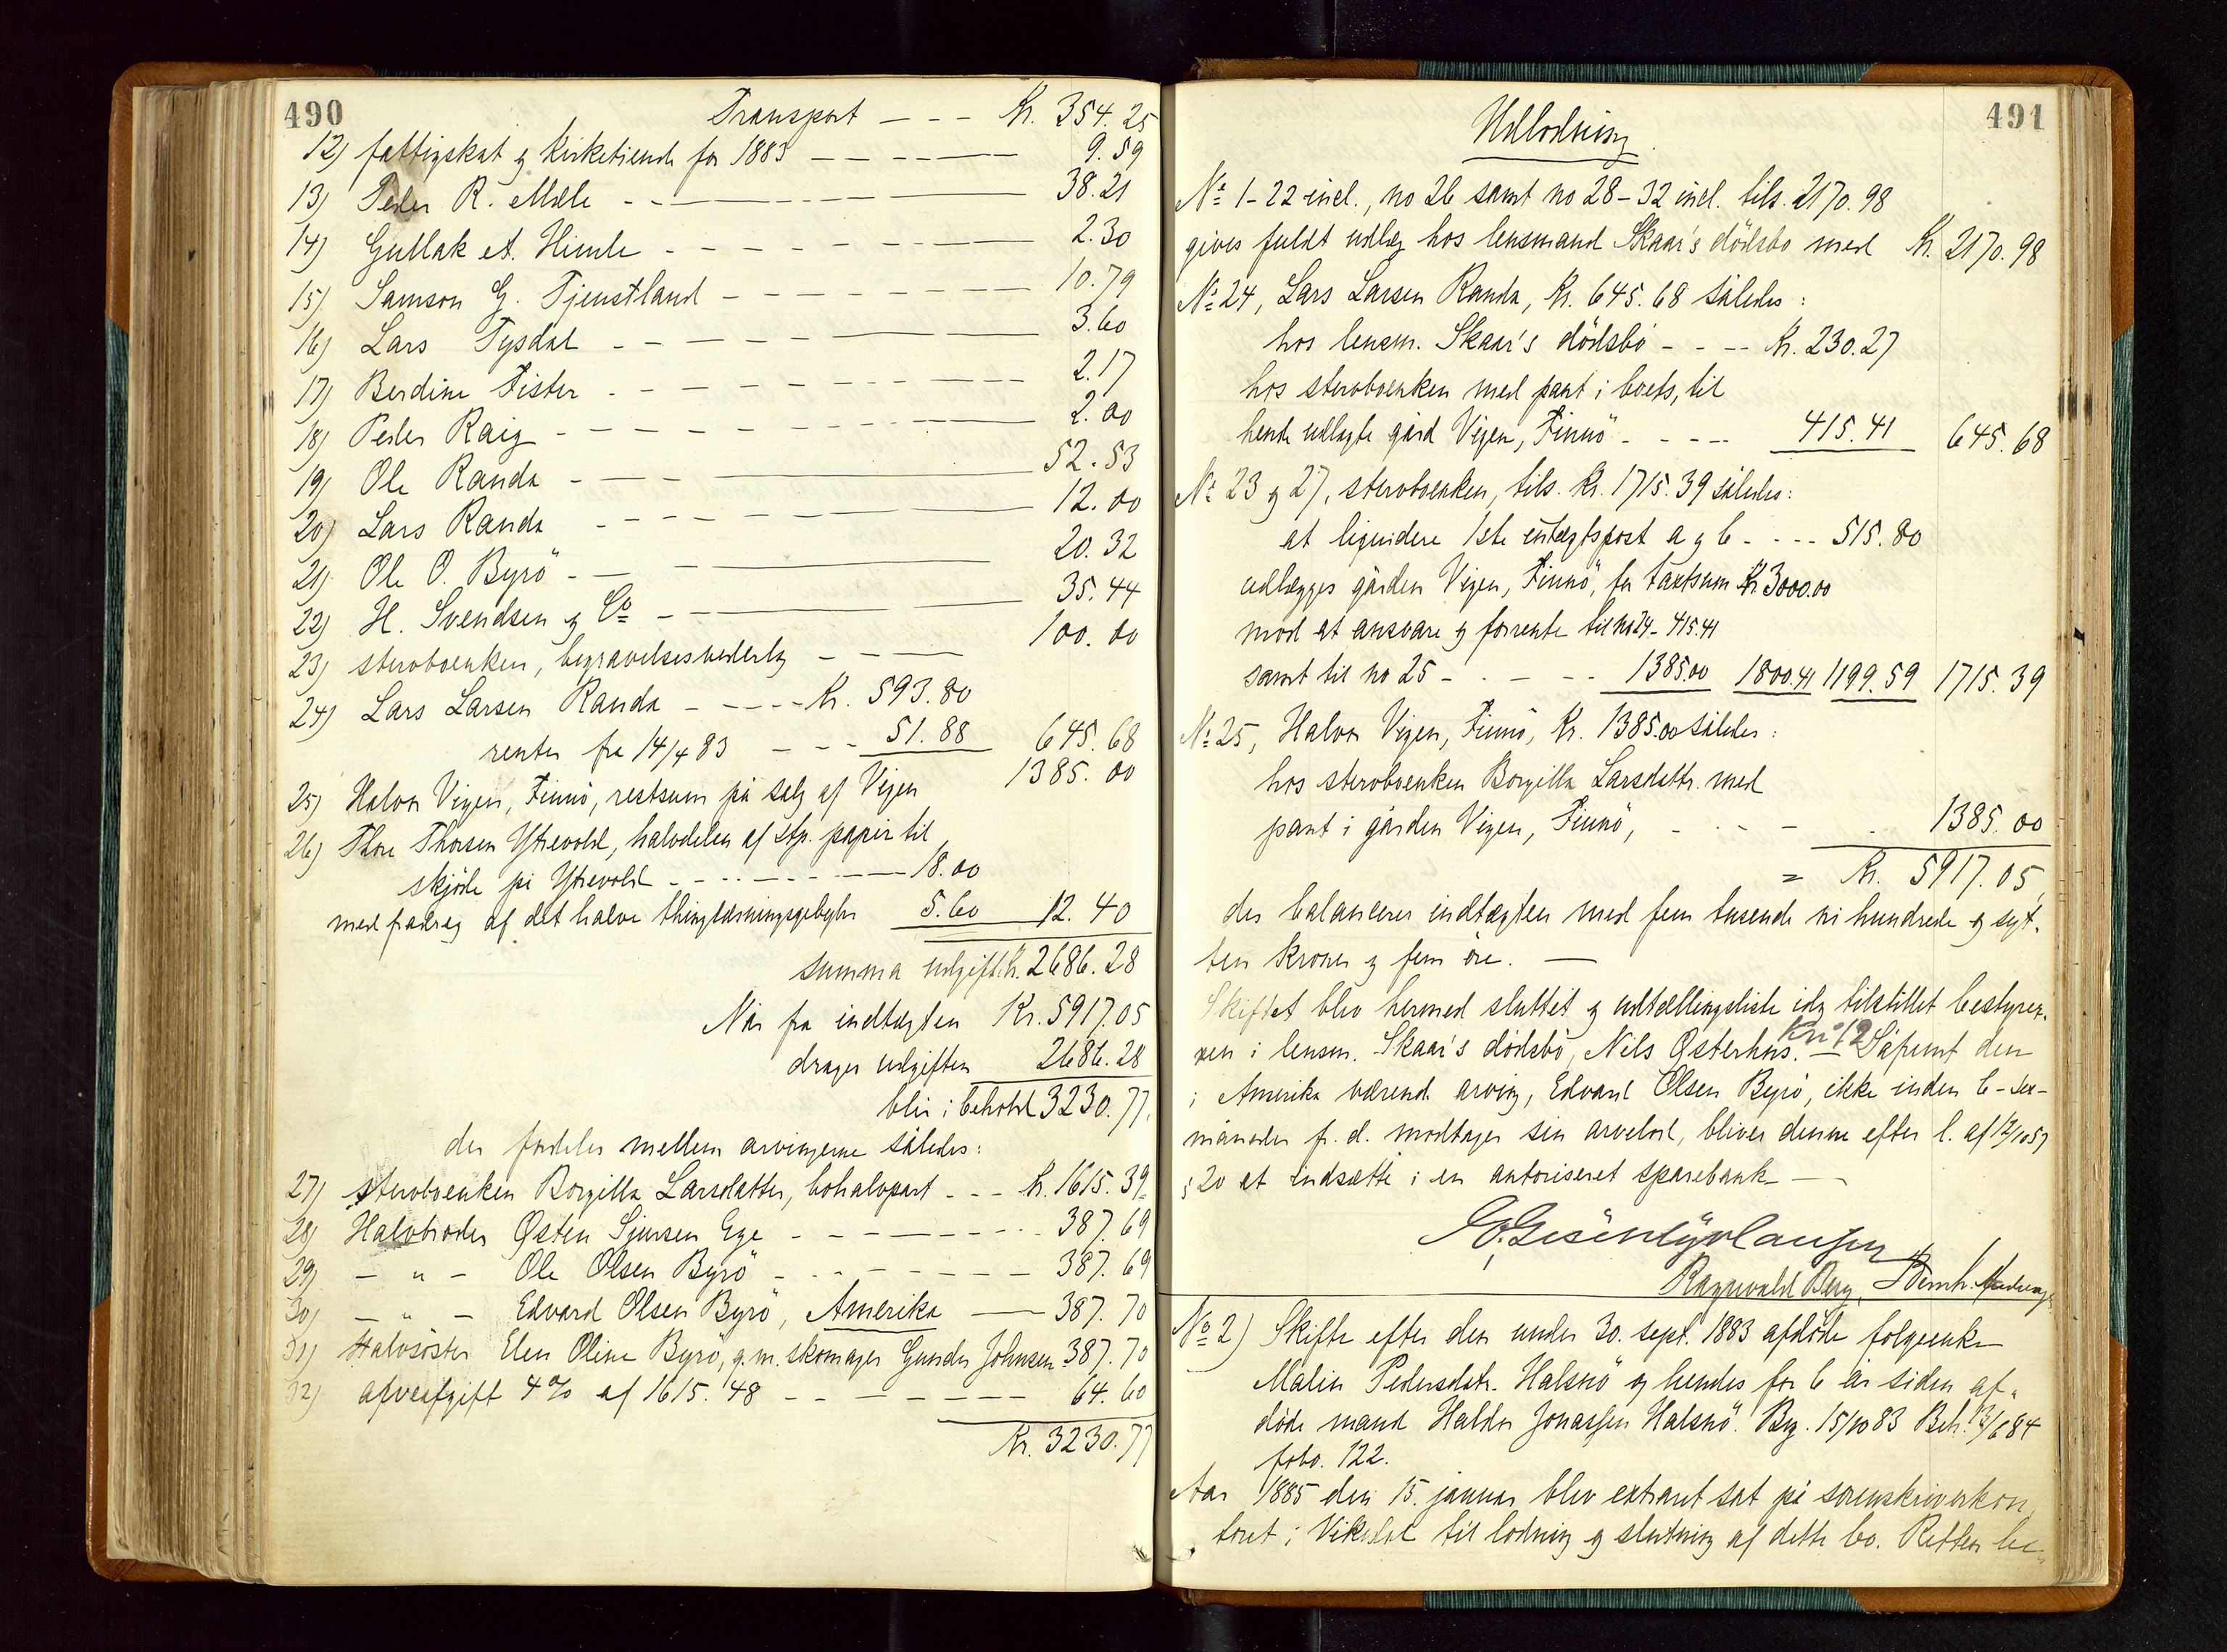 490
Transport - - - Kr. 354.25
12) fattigskat og kirketiende for 1883 - - - - 9.59
13) Peder R. Mæle - - - 38.21
14) Gullak A. Himle - - - 2.30
15) Samson G. Tjenstland - - - 10.79
16) Lars Tysdal - - - 3.60
17) Berdine Fister - - - 2.17
18) Peder Raig - - - 2.00
19) Ole Randa - - - 52.53
20) Lars Randa - - - 12.00
21) Ole O. Byrö - - - 20.32
22) H. Svendsen og Co - - 35.44
23) stervboenken, begravelsesvederlag - - - 100.00
24) Lars Larsen Randa - - - - Kr. 593.80
renter fra 14/4 83 - - - 51.88 645.68
25) Halvor Vigen, Finnö, restsum på salg af Vigen 1385.00
26) Thore Thorsen Ytrevold, halvdelen af stp. papir til
skjöde på Ytrevold - - - 18.00
med fradrag af det halve thinglæsningsgebyhr 5.60 12.40
summa udgift Kr. 2686.28
Når fra indtægten Kr. 5917.05
drages udgiften 2686.28
blir i behold 3230.77.
der fordeles mellem arvingerne således:
27) stervboenken Borgilla Larsdatter, bohalvpart - - - Kr. 1615.39
28) Halvbroder Østen Sjursen Ege - - - 387.69
29) - " - Ole Olsen Byrö - - - 387.69
30) - " - Edvard Olsen Byrö, Amerika - 387.70
31) Halvsöster Elen Oline Byrö, g.m. skomager Gunder Johnsen 387.70
32) afveafgift 4% af 1615.48 - - - 64.60
Kr. 3230.77
491
Udlodning.
No 1-22 incl., no 26 samt no 28-32 incl. tils. 2170.98
gives fuldt udlæg hos lensmand Skaar's dödsbo med Kr. 2170.98
No 24, Lars Larsen Randa, Kr. 645.68 således:
hos lensm. Skaar's dödsbo - - - Kr. 230.27
hos stervboenken med pant i boets, til
hende udlagte gård Vigen, Finnö - - - 415.41 645.68
No 23 og 27, stervboenken, tils. Kr. 1715.39 således:
at liquidere 1ste indtægtspost a og b - - - 515.80
udlægges gården Vigen, Finnö, for taxtsum Kr 3000.00
mod at ansvare og forrente til no 24 - 415.41
samt til no 25 - - - 1385.00 1800.41 1199.59 1715.39
No 25, Halvor Vigen, Finnö, Kr. 1385.00 således:
hos stervboenken Borgilla Larsdattr. med
pant i gården Vigen, Finnö, - - - 1385.00
= Kr. 5917.05,
der balancerer indtægten med fem tusende ni hundrede og syt-
ten kroner og fem öre. —
Skiftet blev hermed sluttet og udtællingsliste idag tilstillet bestyrer-
ren i lensm. Skaar's dödsbo, Nils Østerhus. — Såfremt den
i Amerika værende arving, Edvard Olsen Byrö, ikke inden 6-sex-
måneder fr. d. modtager sin arvelod, bliver denne efter l. af 12/10 57
§ 20 at indsætte i en autoriseret sparebank —
Ragnvald Berg. Bernh.
No 2) Skifte efter den under 30. sept. 1883 afdöde folgeenke
Malin Pedersdatr. Halsnö og hendes for 6 år siden af-
döde mand Haldor Jonassen Halsnö. Beg. 15/10 83 Beh. 13/6 84
fobo. 122.
Aar 1885 den 15. januar blev extraret sat på sorenskriverkon-
toret i Vikedal til lodning og slutning af dette bo. Retten be-